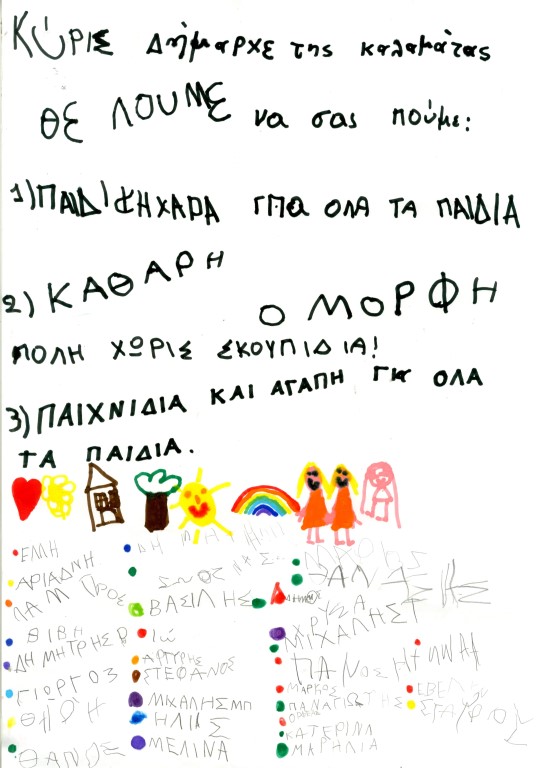 ΚΥΡΙΕ Δήμαρχε της καλαμάτας
ΘΕ ΛΟΥΜΕ να σας πούμε:
1) ΠΑΙΔΙΚΗ ΧΑΡΑ ΓΙΑ ΟΛΑ ΤΑ ΠΑΙΔΙΑ
2) ΚΑΘΑΡΗ
Ο ΜΟΡΦΗ
ΠΟΛΗ ΧΩΡΙΣ ΣΚΟΥΠΙΔΙΑ!
3) ΠΑΙΧΝΙΔΙΑ ΚΑΙ ΑΓΑΠΗ ΓΙΑ ΟΛΑ
ΤΑ ΠΑΙΔΙΑ.
ΕΛΛΗ
ΑΡΙΑΔΝΗ
ΛΑΜΠΡΟΣ
ΒΙΒΗ
ΔΗΜΗΤΡΗΣ Ρ
ΓΙΩΡΓΟΣ
ΘΑΝΟΣ
ΒΑΣΙΛΗΣ
ΑΡΓΥΡΗΣ
ΣΤΕΦΑΝΟΣ
ΜΙΧΑΛΗΣ ΜΠ
ΗΛΙΑΣ
ΜΕΛΙΝΑ
ΧΡΥΣΑ
ΜΙΧΑΛΗΣ Τ
ΠΑΝΟΣ
ΜΑΡΚΟΣ
ΠΑΝΑΓΙΩΤΗΣ
ΚΑΤΕΡΙΝΑ
ΜΑΡΗΛΙΑ